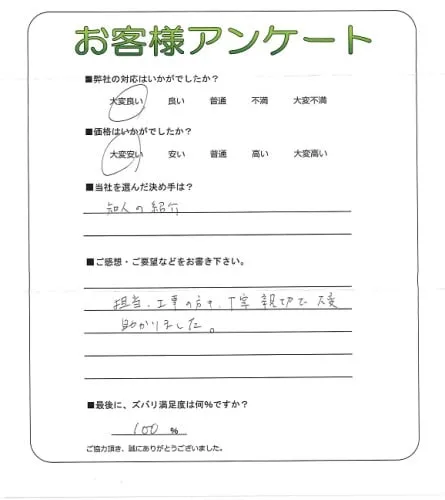 お客様アンケート
■弊社の対応はいかがでしたか？
大変良い 良い 普通 不満 大変不満
■価格はいかがでしたか？
大変安い 安い 普通 高い 大変高い
■当社を選んだ決め手は？
知人の紹介
■ご感想・ご要望などをお書き下さい。
担当、工事の方も、丁寧 親切で 大変
助かりました。
■最後に、ズバリ満足度は何%ですか？
100 %
ご協力頂き、誠にありがとうございました。